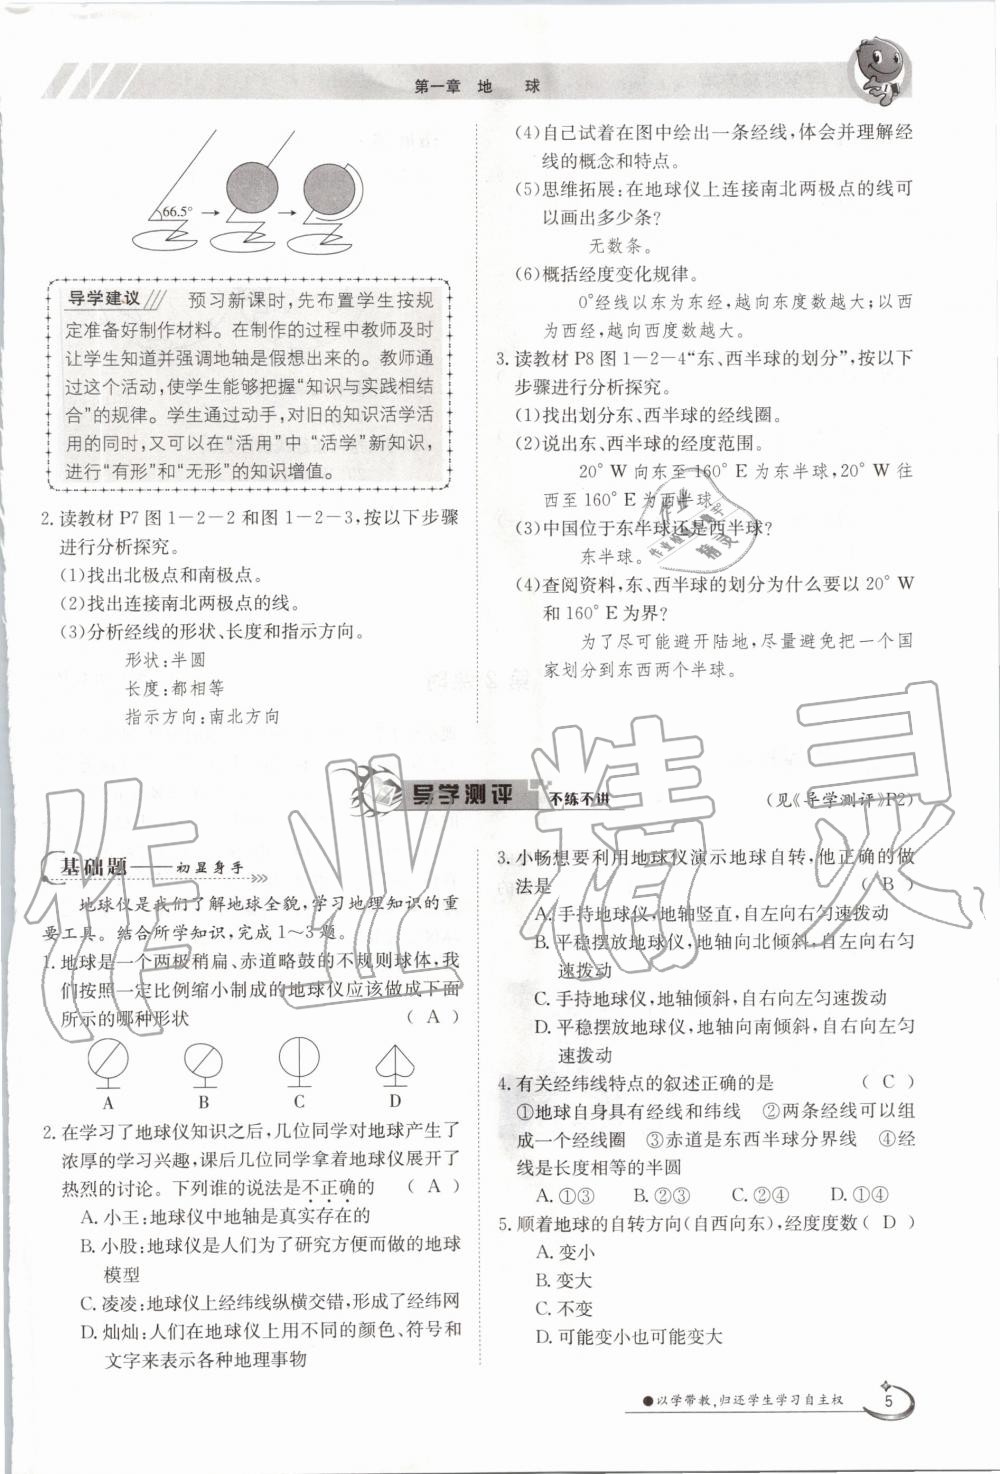 第一章 地 球
66.5°
导学建议 预习新课时,先布置学生按规
定准备好制作材料。在制作的过程中教师及时
让学生知道并强调地轴是假想出来的。教师通
过这个活动,使学生能够把握“知识与实践相结
合”的规律。学生通过动手,对旧的知识活学活
用的同时,又可以在“活用”中“活学”新知识,
进行“有形”和“无形”的知识增值。
2. 读教材 P7 图 1-2-2 和图 1-2-3,按以下步骤
进行分析探究。
(1)找出北极点和南极点。
(2)找出连接南北两极点的线。
(3)分析经线的形状、长度和指示方向。
形状:半圆
长度:都相等
指示方向:南北方向
(4)自己试着在图中绘出一条经线,体会并理解经
线的概念和特点。
(5)思维拓展:在地球仪上连接南北两极点的线可
以画出多少条?
无数条。
(6)概括经度变化规律。
0°经线以东为东经,越向东度数越大;以西
为西经,越向西度数越大。
3. 读教材 P8 图 1-2-4“东、西半球的划分”,按以下
步骤进行分析探究。
(1)找出划分东、西半球的经线圈。
(2)说出东、西半球的经度范围。
20° W 向东至 160° E 为东半球,20° W 往
西至 160° E 为西半球。
(3)中国位于东半球还是西半球?
东半球。
(4)查阅资料,东、西半球的划分为什么要以 20° W
和 160° E 为界?
为了尽可能避开陆地,尽量避免把一个国
家划分到东西两个半球。
导学测评 不练不讲 (见《导学测评》P2)
基础题——初显身手
地球仪是我们了解地球全貌,学习地理知识的重
要工具。结合所学知识,完成 1~3 题。
1. 地球是一个两极稍扁、赤道略鼓的不规则球体,我
们按照一定比例缩小制成的地球仪应该做成下面
所示的哪种形状 ( A )
A B C D
2. 在学习了地球仪知识之后,几位同学对地球产生了
浓厚的学习兴趣,课后几位同学拿着地球仪展开了
热烈的讨论。下列谁的说法是不正确的 ( A )
A. 小王:地球仪中地轴是真实存在的
B. 小股:地球仪是人们为了研究方便而做的地球
模型
C. 凌凌:地球仪上经纬线纵横交错,形成了经纬网
D. 灿灿:人们在地球仪上用不同的颜色、符号和
文字来表示各种地理事物
3. 小畅想要利用地球仪演示地球自转,他正确的做
法是 ( B )
A. 手持地球仪,地轴竖直,自左向右匀速拨动
B. 平稳摆放地球仪,地轴向北倾斜,自左向右匀
速拨动
C. 手持地球仪,地轴倾斜,自右向左匀速拨动
D. 平稳摆放地球仪,地轴向南倾斜,自右向左匀
速拨动
4. 有关经纬线特点的叙述正确的是 ( C )
①地球自身具有经线和纬线 ②两条经线可以组
成一个经线圈 ③赤道是东西半球分界线 ④经
线是长度相等的半圆
A. ①③ B. ②③ C. ②④ D. ①④
5. 顺着地球的自转方向(自西向东),经度度数 ( D )
A. 变小
B. 变大
C. 不变
D. 可能变小也可能变大
●以学带教,归还学生学习自主权 5
作业精灵